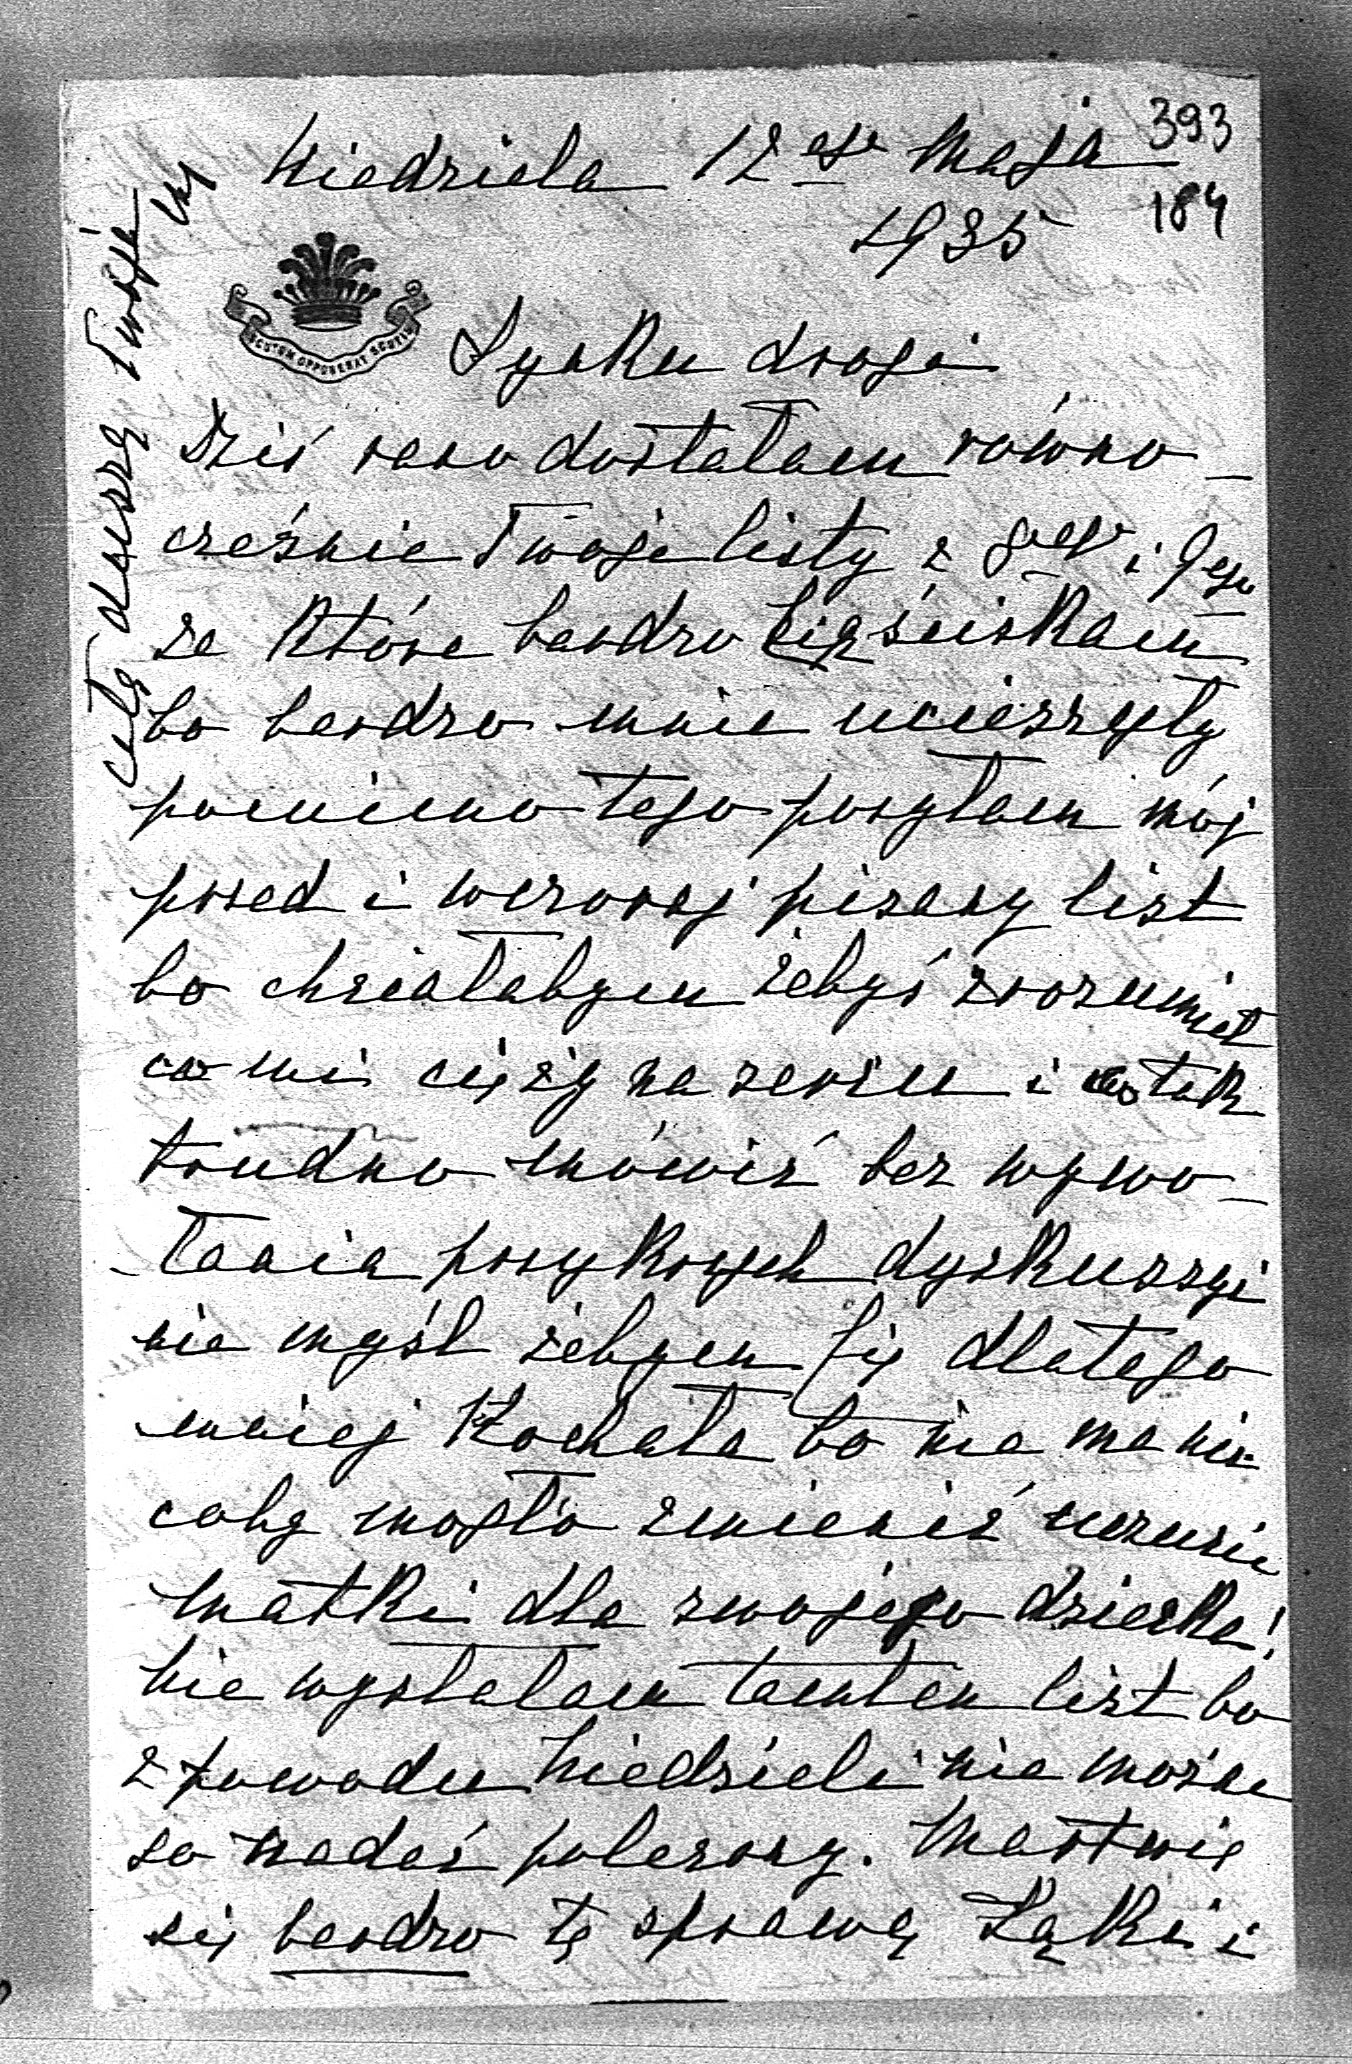 393
184
Niedziela 12ego Maja
1935
SCUTUM OPPONEBAT SCUTIS
Synku drogi
Dziś rano dostałam równo-
cześnie Twoje listy z 8ego i 9ego
za które bardzo Cię ściskam
bo bardzo mnie ucieszyły
pomimo tego posyłam mój
przed i wczoraj pisany list
bo chciałabym żebyś zrozumiał
co mi cięży na sercu i co tak
trudno mówić bez wywo-
łania przykrych dyskuszyi
nie myśl żebym Cię dlatego
mniej kochała bo nie ma nic
coby mogło zmienić uczucie
matki dla swojego dziecka!
Nie wysłałam tamten list bo
z powodu Niedzieli nie można
go nadać polecony. Martwię
się bardzo tą sprawą Łąki i
całą duszą Twoja